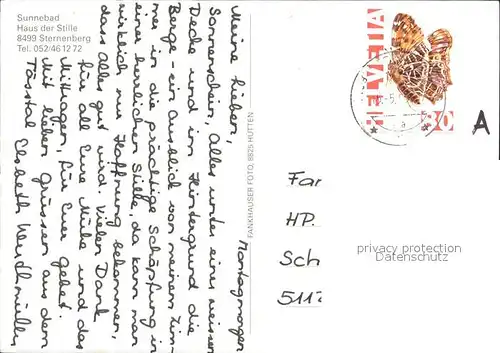 Sunnebad
Haus der Stille
8499 Sternenberg
Tel. 052/46 12 72
Montagmorgen
Meine Lieben,
Sonnenschein, Alles unter einer weissen
Decke und im Hintergrund die
Berge - ein Ausblick von meinem Zim-
mer in die prächtige Schöpfung in
einer herrlichen Stille, da kann man
wirklich nur Hoffnung bekommen,
dass alles gut wird. Vielen Dank
für all Eure Mühe und das
Mittragen, für Euer Gebet.
Mit lieben Grüssen aus dem
Tösstal Elsbeth
FANKHAUSER FOTO, 8825 HÜTTEN
HELVETIA
80
A
Fam
HP.
Sch
511
privacy protection
Datenschutz